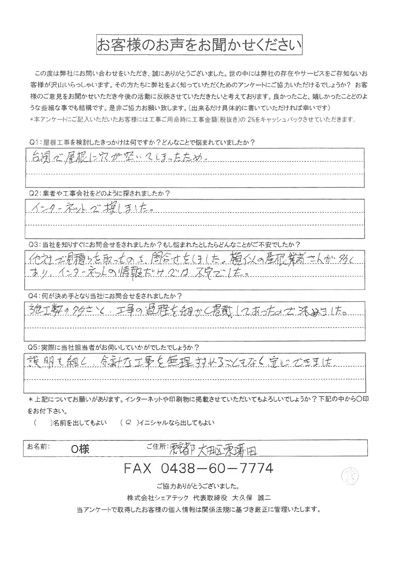 お客様のお声をお聞かせください
この度は弊社にお問い合わせをいただき、誠にありがとうございました。世の中には弊社の存在やサービスをご存知ないお
客様が沢山いらっしゃいます。その方たちに弊社をよく知っていただくためのアンケートにご協力いただけるでしょうか？ お客
様のご意見をお聞かせいただき今後の活動に反映させていただきたいと考えております。良かったこと、嬉しかったことどのよ
うな些細な事でも結構です。是非ご協力お願い致します。（出来るだけ具体的に書いていただければ幸いです）
*本アンケートにご記入いただいたお客様には工事ご用命時に工事金額(税抜き)の2%をキャッシュバックさせていただきます.
Q1：屋根工事を検討したきっかけは何ですか？どんなことで悩まれていましたか？
台風で屋根に穴が空いてしまったため.
Q2：業者や工事会社をどのように探されましたか？
インターネットで探しました。
Q3：当社を知りすぐにお問合せをされましたか？もし悩まれたとしたらどんなことがご不安でしたか？
他社に見積りを取ったのち、問合せをしました。
あり、インターネットの情報だけでは不安でした。
Q4：何が決め手となり当社にお問合せをされましたか？
施工数の多さと、工事の過程を細かく掲載してあったので決めました。
Q5：実際に当社担当者がお伺いしていかがでしたでしょうか？
説明も細かく、余計な工事を無理にすすめることもなく安心できました
＊上記についてお願いがあります。インターネットや印刷物に掲載させていただいてもよろしいでしょうか？下記の中から〇印
をお付下さい。
（　）名前を出してもよい　（○）イニシャルなら出してもよい
お名前: O様 ご住所: 東京都大田区東蒲田
FAX 0438-60-7774
ご協力ありがとうございました。
株式会社シェアテック 代表取締役 大久保 誠二
当アンケートで取得したお客様の個人情報は関係法規に基づき厳正に管理いたします。